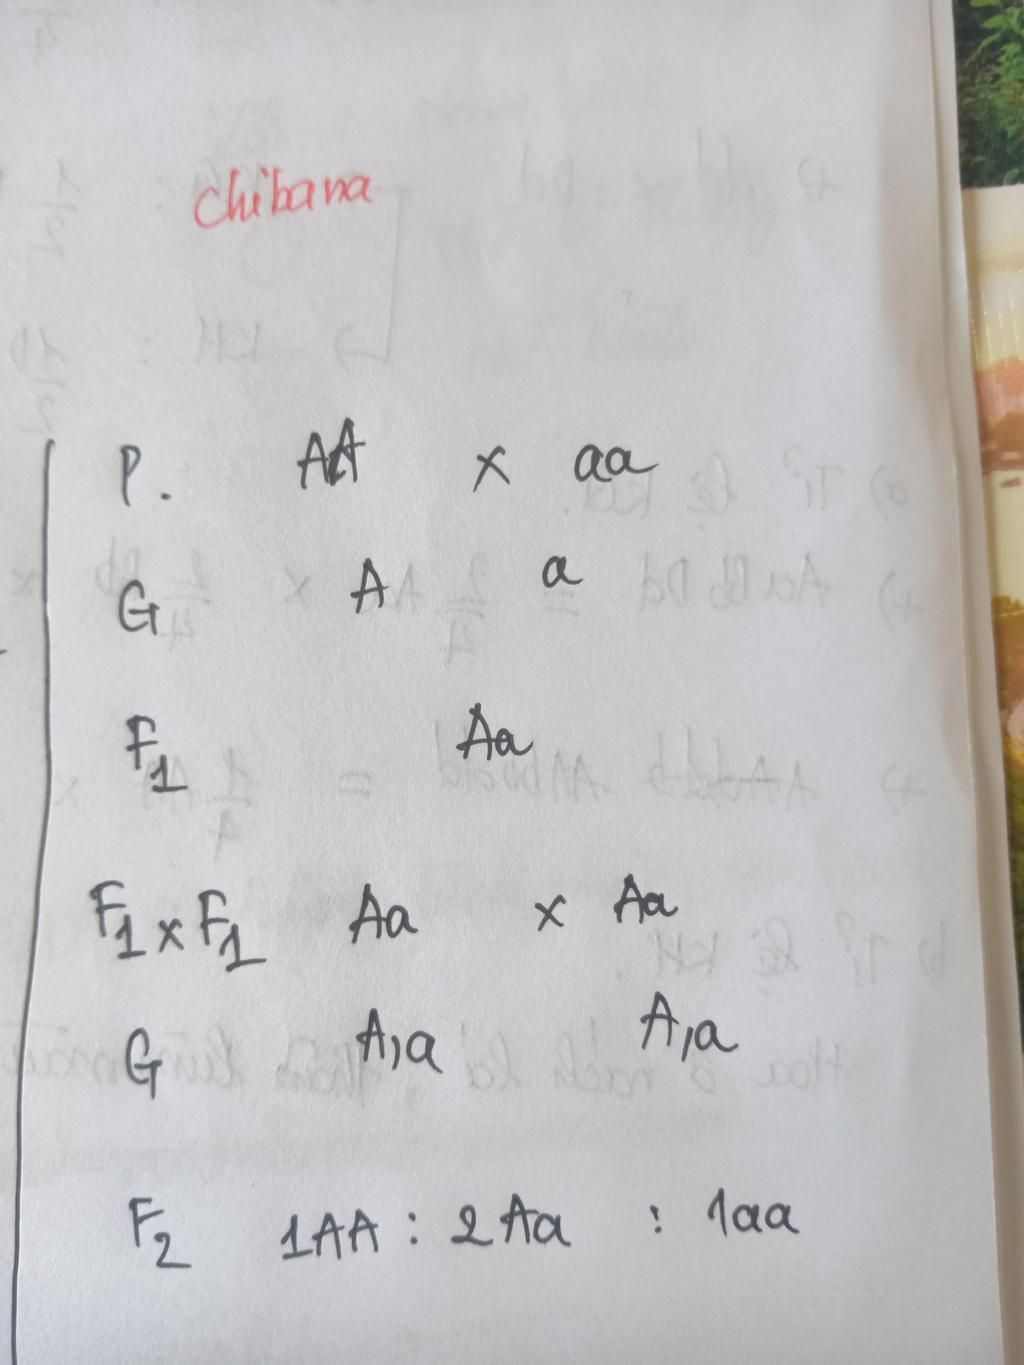 chibana
P. AA x aa
G A a
F1 Aa
F1 x F1 Aa x Aa
G A,a A,a
F2 1AA : 2Aa : 1aa